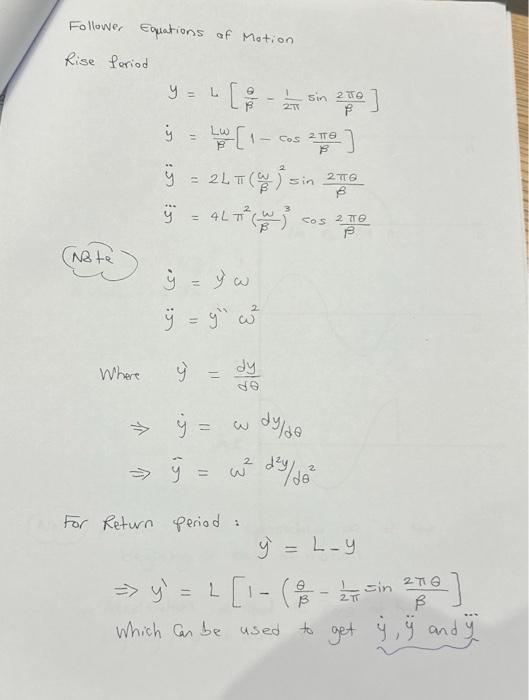 Follower Equations of Motion
Rise Period
y = L [ θ/β - 1/2π sin 2πθ/β ]
ẏ = Lω/β [ 1 - cos 2πθ/β ]
ÿ = 2Lπ (ω/β)² sin 2πθ/β
y⃛ = 4Lπ² (ω/β)³ cos 2πθ/β
Note
ẏ = y` ω
ÿ = y`` ω²
Where y` = dy/dθ
⇒ ẏ = ω dy/dθ
⇒ ÿ = ω² d²y/dθ²
For Return period :
y` = L - y
⇒ y` = L [ 1 - ( θ/β - 1/2π sin 2πθ/β ]
Which Can be used to get ẏ, ÿ and y⃛